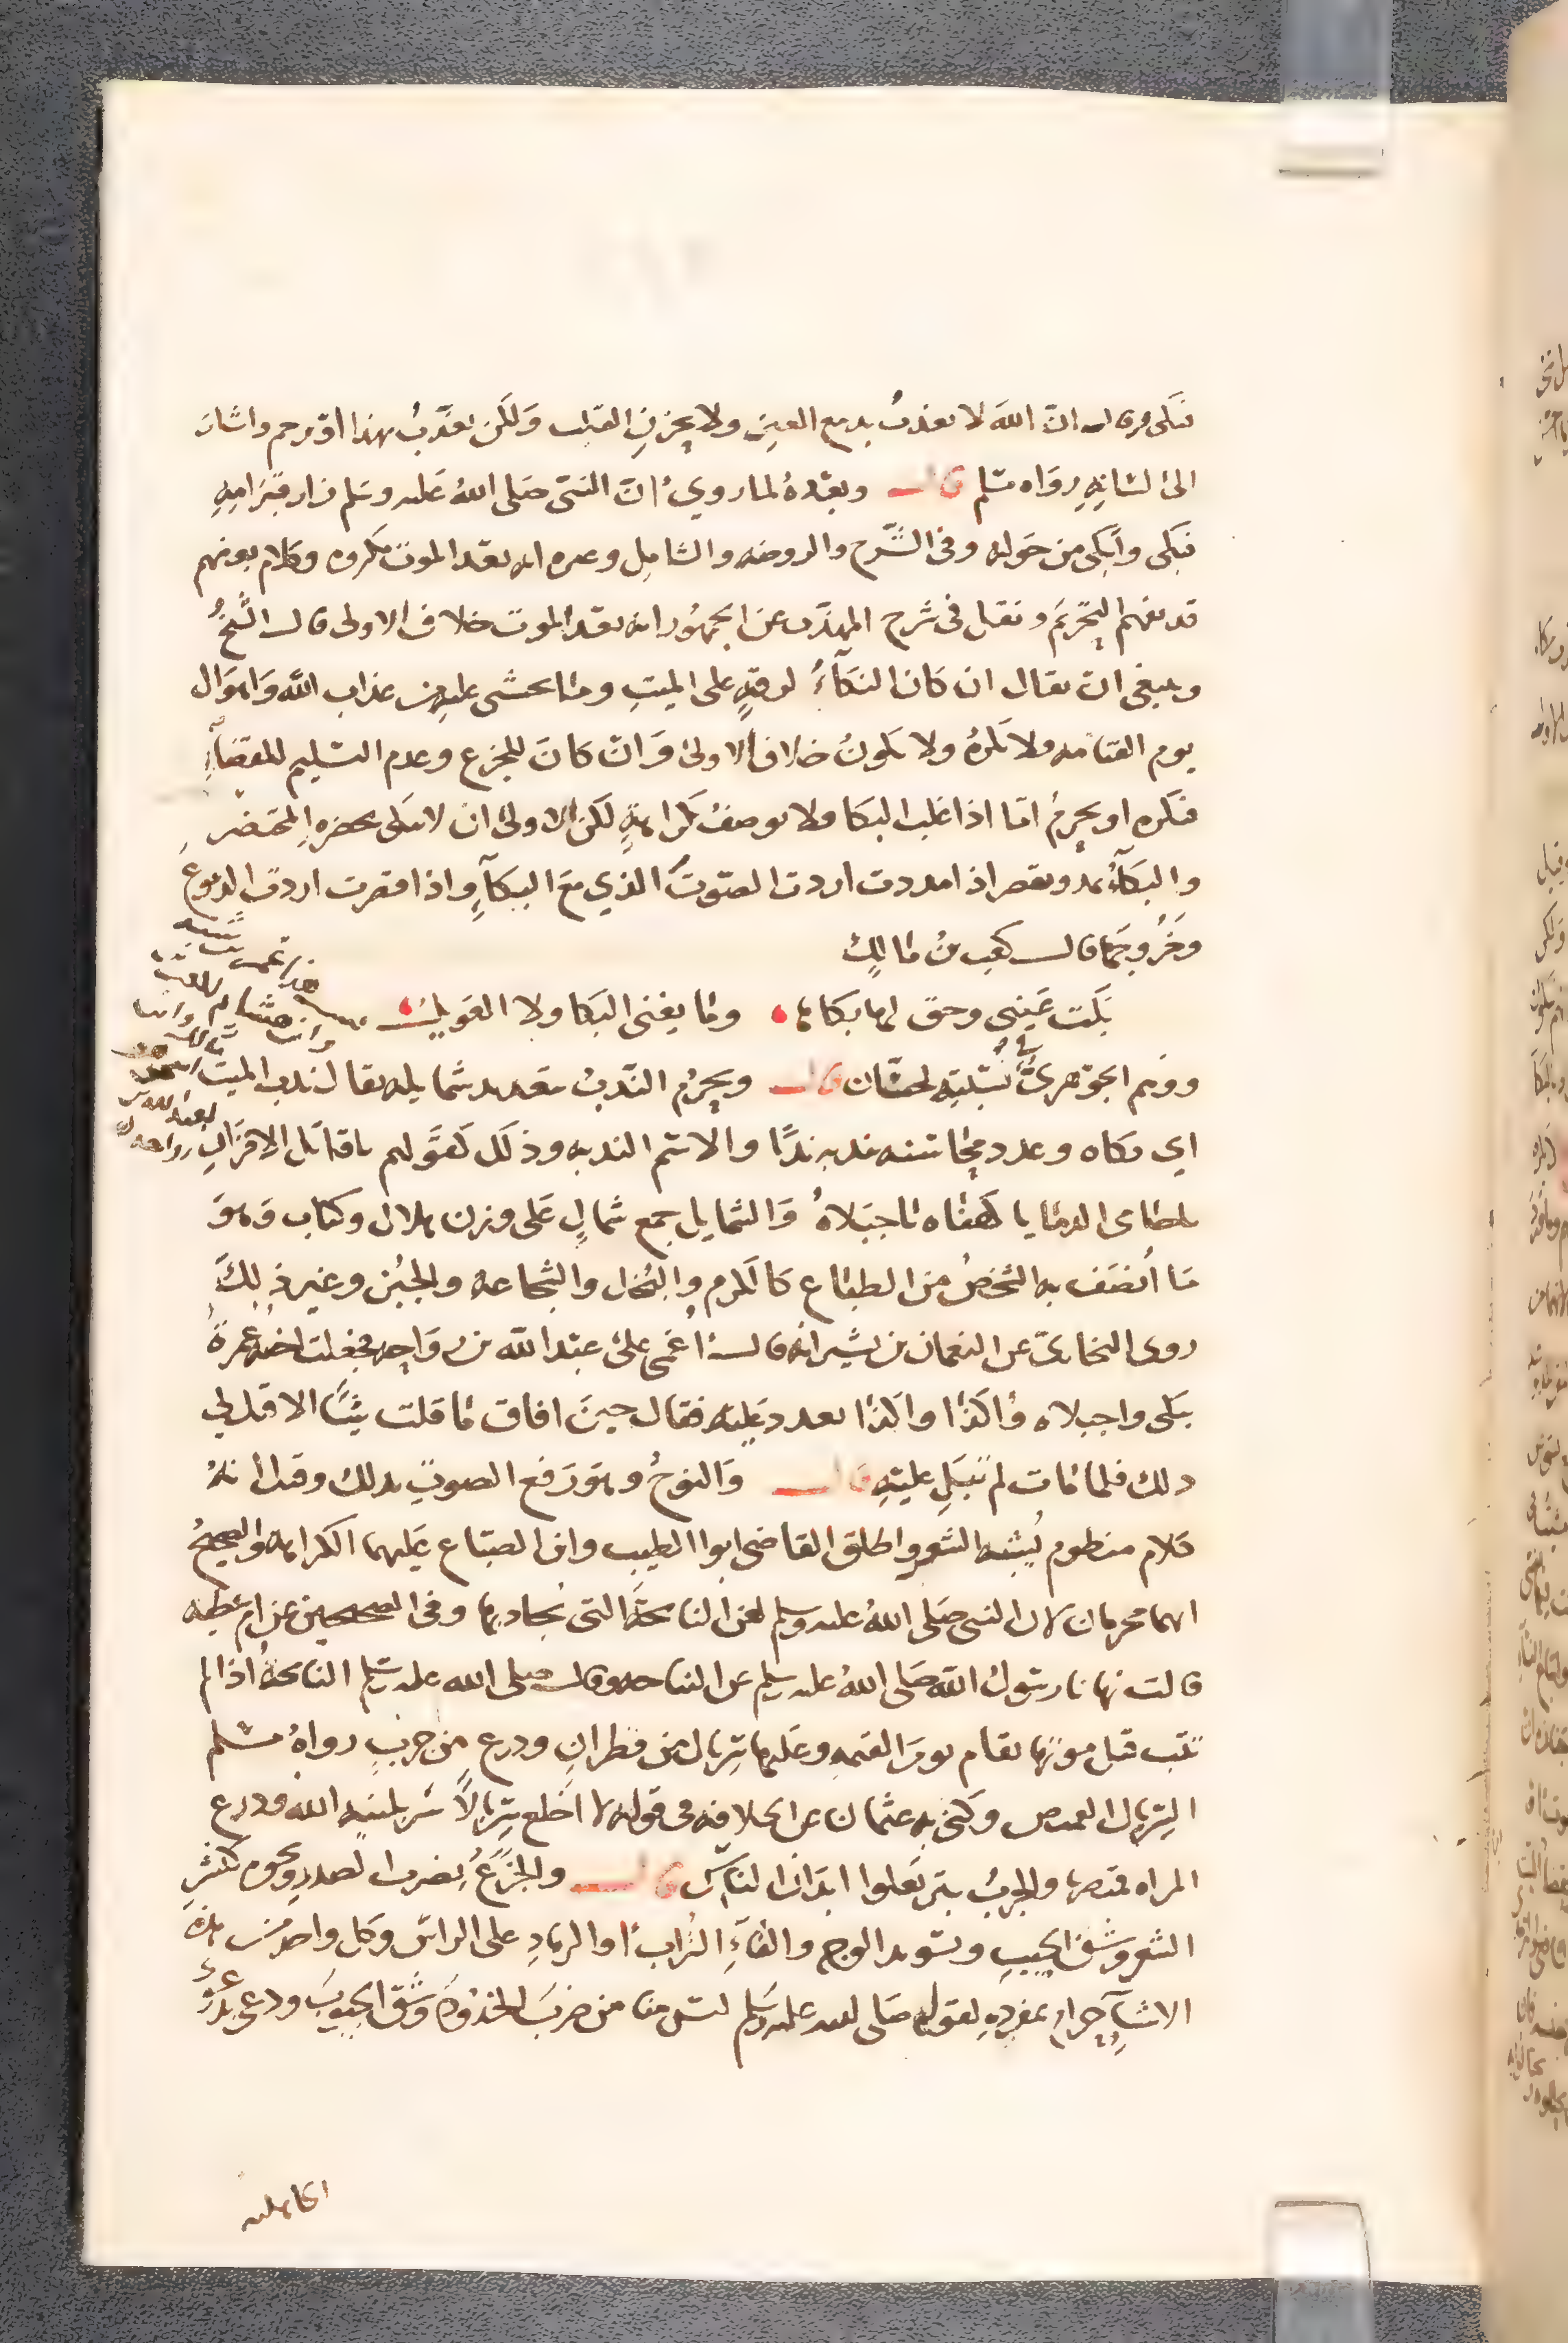 فبكى وقال ان الله لا يعذب بدمع العين ولا بحزن القلب ولكن يعذب بهذا او يرحم واشار
الى لسانه رواه مسلم قال وبعده لما روي ان النبي صلى الله عليه وسلم زار قبر امه
فبكى وأبكى من حوله وفي الشرح والروضه والشامل وغيره انه بعد الموت مكروه وكلام بعضهم
قد يفهم التحريم ونقل في شرح المهذب عن الجمهور انه بعد الموت خلاف الاولى قال الشيخ
وينبغي ان يقال ان كان البكاء لرقة على الميت وما يخشى عليه من عذاب الله واهوال
يوم القيامه ولا يكره ولا يكون خلاف الاولى وان كان للجزع وعدم التسليم للقضاء
فيكره او يحرم اما اذا غلب البكا ولا يوصف بكراهة لكن الاولى ان لا يبكى بحضرة المحتضر
والبكاء يمد ويقصر اذا مددت اردت الصوت الذي مع البكاء واذا قصرت اردت الدموع
وخروجها قال كعب بن مالك
بكت عيني وحق لها بكاها وما يغني البكا ولا العويل
ووهم الجوهري في نسبته لحسان قال ويحرم الندب بتعديد شمايله يقال ندب الميت
اي بكاه وعدد محاسنه يندبه ندبا والاسم الندبه وذلك كقولهم ياقاتل الاقران
ياكهفاه ياجبلاه والشمايل جمع شمال على وزن هلال وكتاب وهو
ما أتصف به الشخص من الطباع كالكرم والبخل والشجاعه والجبن وغير ذلك
روى البخاري عن النعمان بن بشير انه قال اغمي على عبد الله بن رواحه فجعلت اخته عمرة
تبكى واجبلاه واكذا واكذا تعدد عليه فقال حين افاق ما قلت شيئا الا قيل لي
ذلك فلما مات لم تبك عليه قال والنوح وهو رفع الصوت بذلك وقيل انه
كلام منظوم يشبه الشعر واطلق القاضي ابوا الطيب وابن الصباغ عليهما الكراهه والصحيح
انهما محرمان لان النبي صلى الله عليه وسلم لعن النائحة التي تجاد بها وفي الصحيحين عن ام عطيه
قالت نهانا رسول الله صلى الله عليه وسلم عن النياحه وقال صلى الله عليه وسلم النائحة اذا لم
تتب قبل موتها تقام يوم القيمه وعليها سربال من قطران ودرع من جرب رواه مسلم
السربال القميص وكنى به عثمان عن الخلافه في قوله لا اخلع سربالا سربلنيه الله ودرع
المراه قميصها والجرب بثر تعلوا ابدان الناس قال والجزع بضرب الصدر ونحوه كنشر
الشعر وشق الجيب وتسويد الوجه والقاء التراب أو الرماد على الراس وكل واحد من هذه
الاشياء حرام بمفرده لقوله صلى الله عليه وسلم ليس منا من ضرب الخدود وشق الجيوب ودعى بدعوى
الجاهليه